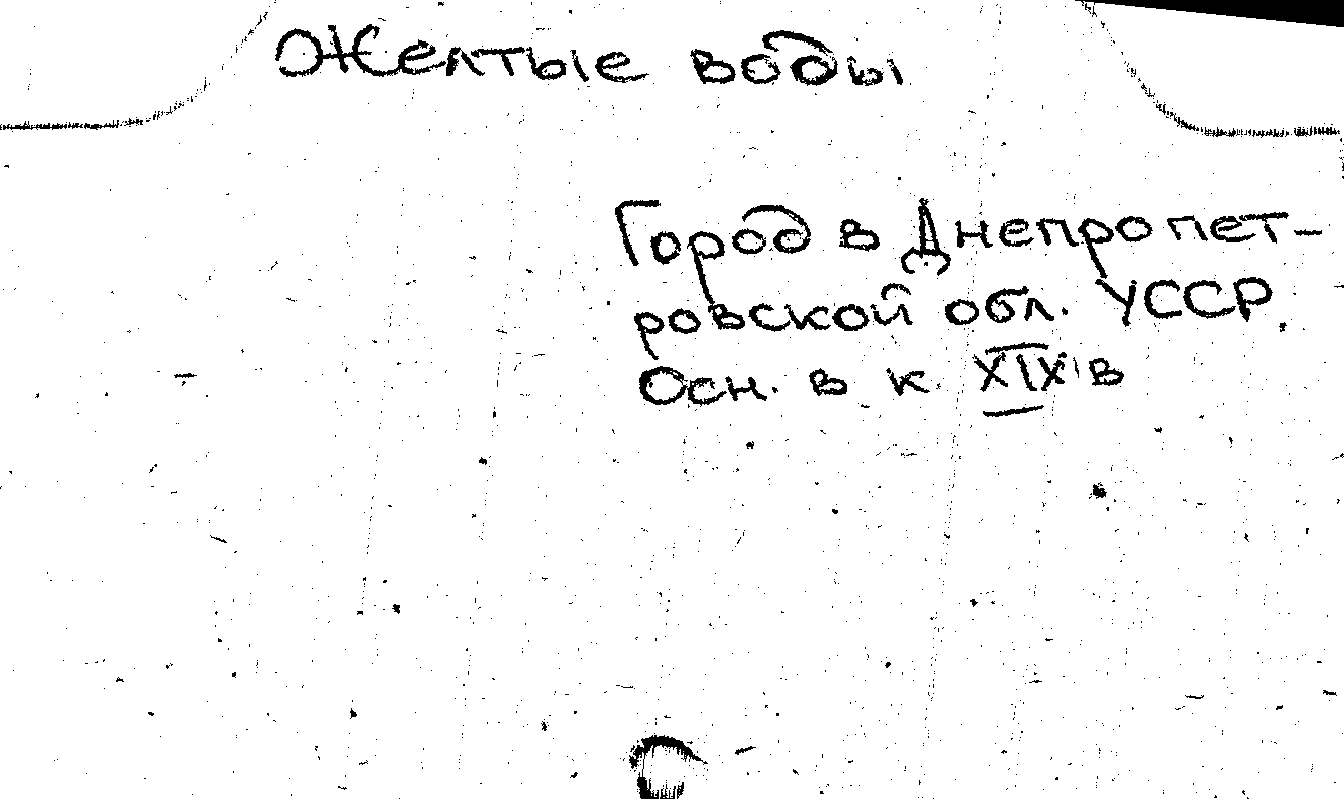 Желтые воды
Город в Днепропет-
ровской обл. УССР.
Осн. в к. XIX в